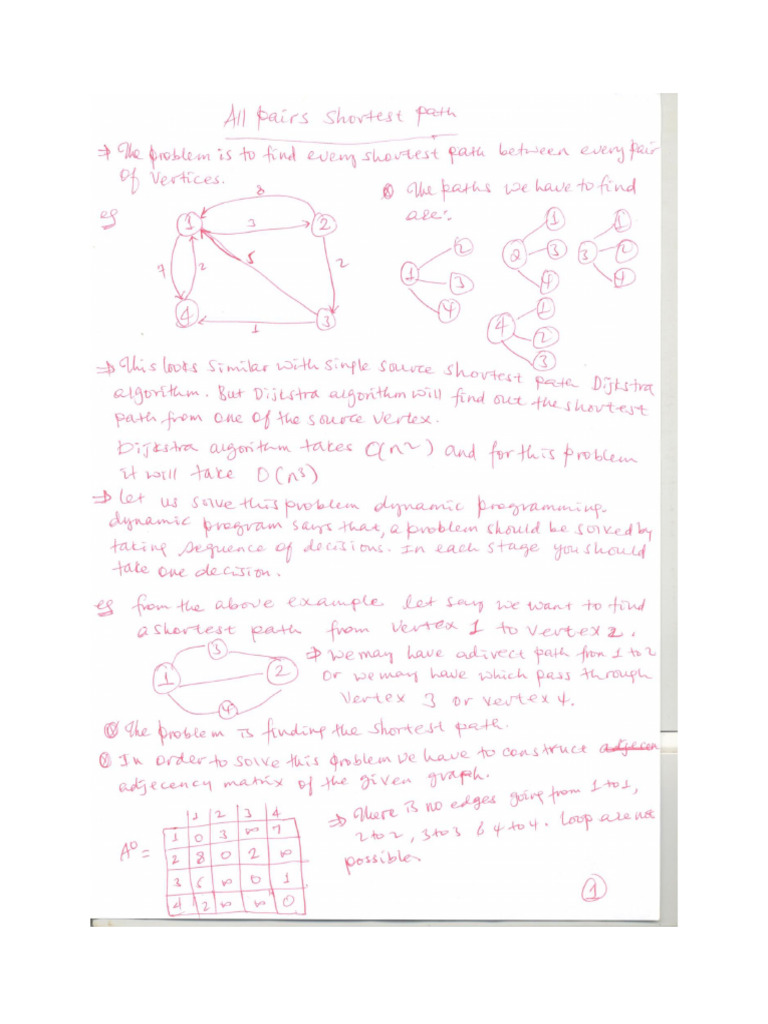 All pairs shortest path
⇒ The problem is to find every shortest path between every pair
of vertices.
eg
8
1 3 2
7 2 5 2
4 1 3
⊗ The paths we have to find
are:
1 2 3 4
2 1 3 4
3 1 2 4
4 1 2 3
⇒ This looks similar with single source shortest path Dijkstra
algorithm. But Dijkstra algorithm will find out the shortest
path from one of the source vertex.
Dijkstra algorithm takes O(n²) and for this problem
it will take O(n³)
⇒ Let us solve this problem dynamic programming.
dynamic program says that, a problem should be solved by
taking sequence of decisions. In each stage you should
take one decision.
eg from the above example let say we want to find
a shortest path from vertex 1 to vertex 2.
3
1 2
4
⇒ we may have a direct path from 1 to 2
or we may have which pass through
vertex 3 or vertex 4.
⊗ The problem is finding the shortest path.
⊗ In order to solve this problem we have to construct adjecen
adjecency matrix of the given graph.
1 2 3 4
1 0 3 ∞ 7
A⁰ = 2 8 0 2 ∞
3 5 ∞ 0 1
4 2 ∞ ∞ 0
⇒ There is no edges going from 1 to 1,
2 to 2, 3 to 3 & 4 to 4. Loop are not
possible.
1